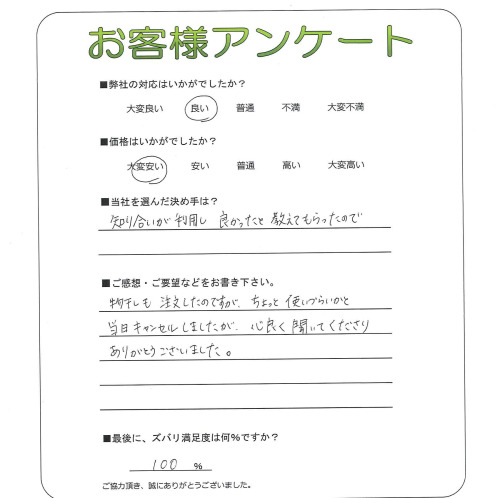 お客様アンケート
■弊社の対応はいかがでしたか？
大変良い 良い 普通 不満 大変不満
■価格はいかがでしたか？
大変安い 安い 普通 高い 大変高い
■当社を選んだ決め手は？
知り合いが利用し 良かったと 教えてもらったので
■ご感想・ご要望などをお書き下さい。
物干しも 注文したのですが、ちょっと 使いづらいかと
当日キャンセルしましたが、心良く 聞いてくださり
ありがとうございました。
■最後に、ズバリ満足度は何％ですか？
100 ％
ご協力頂き、誠にありがとうございました。